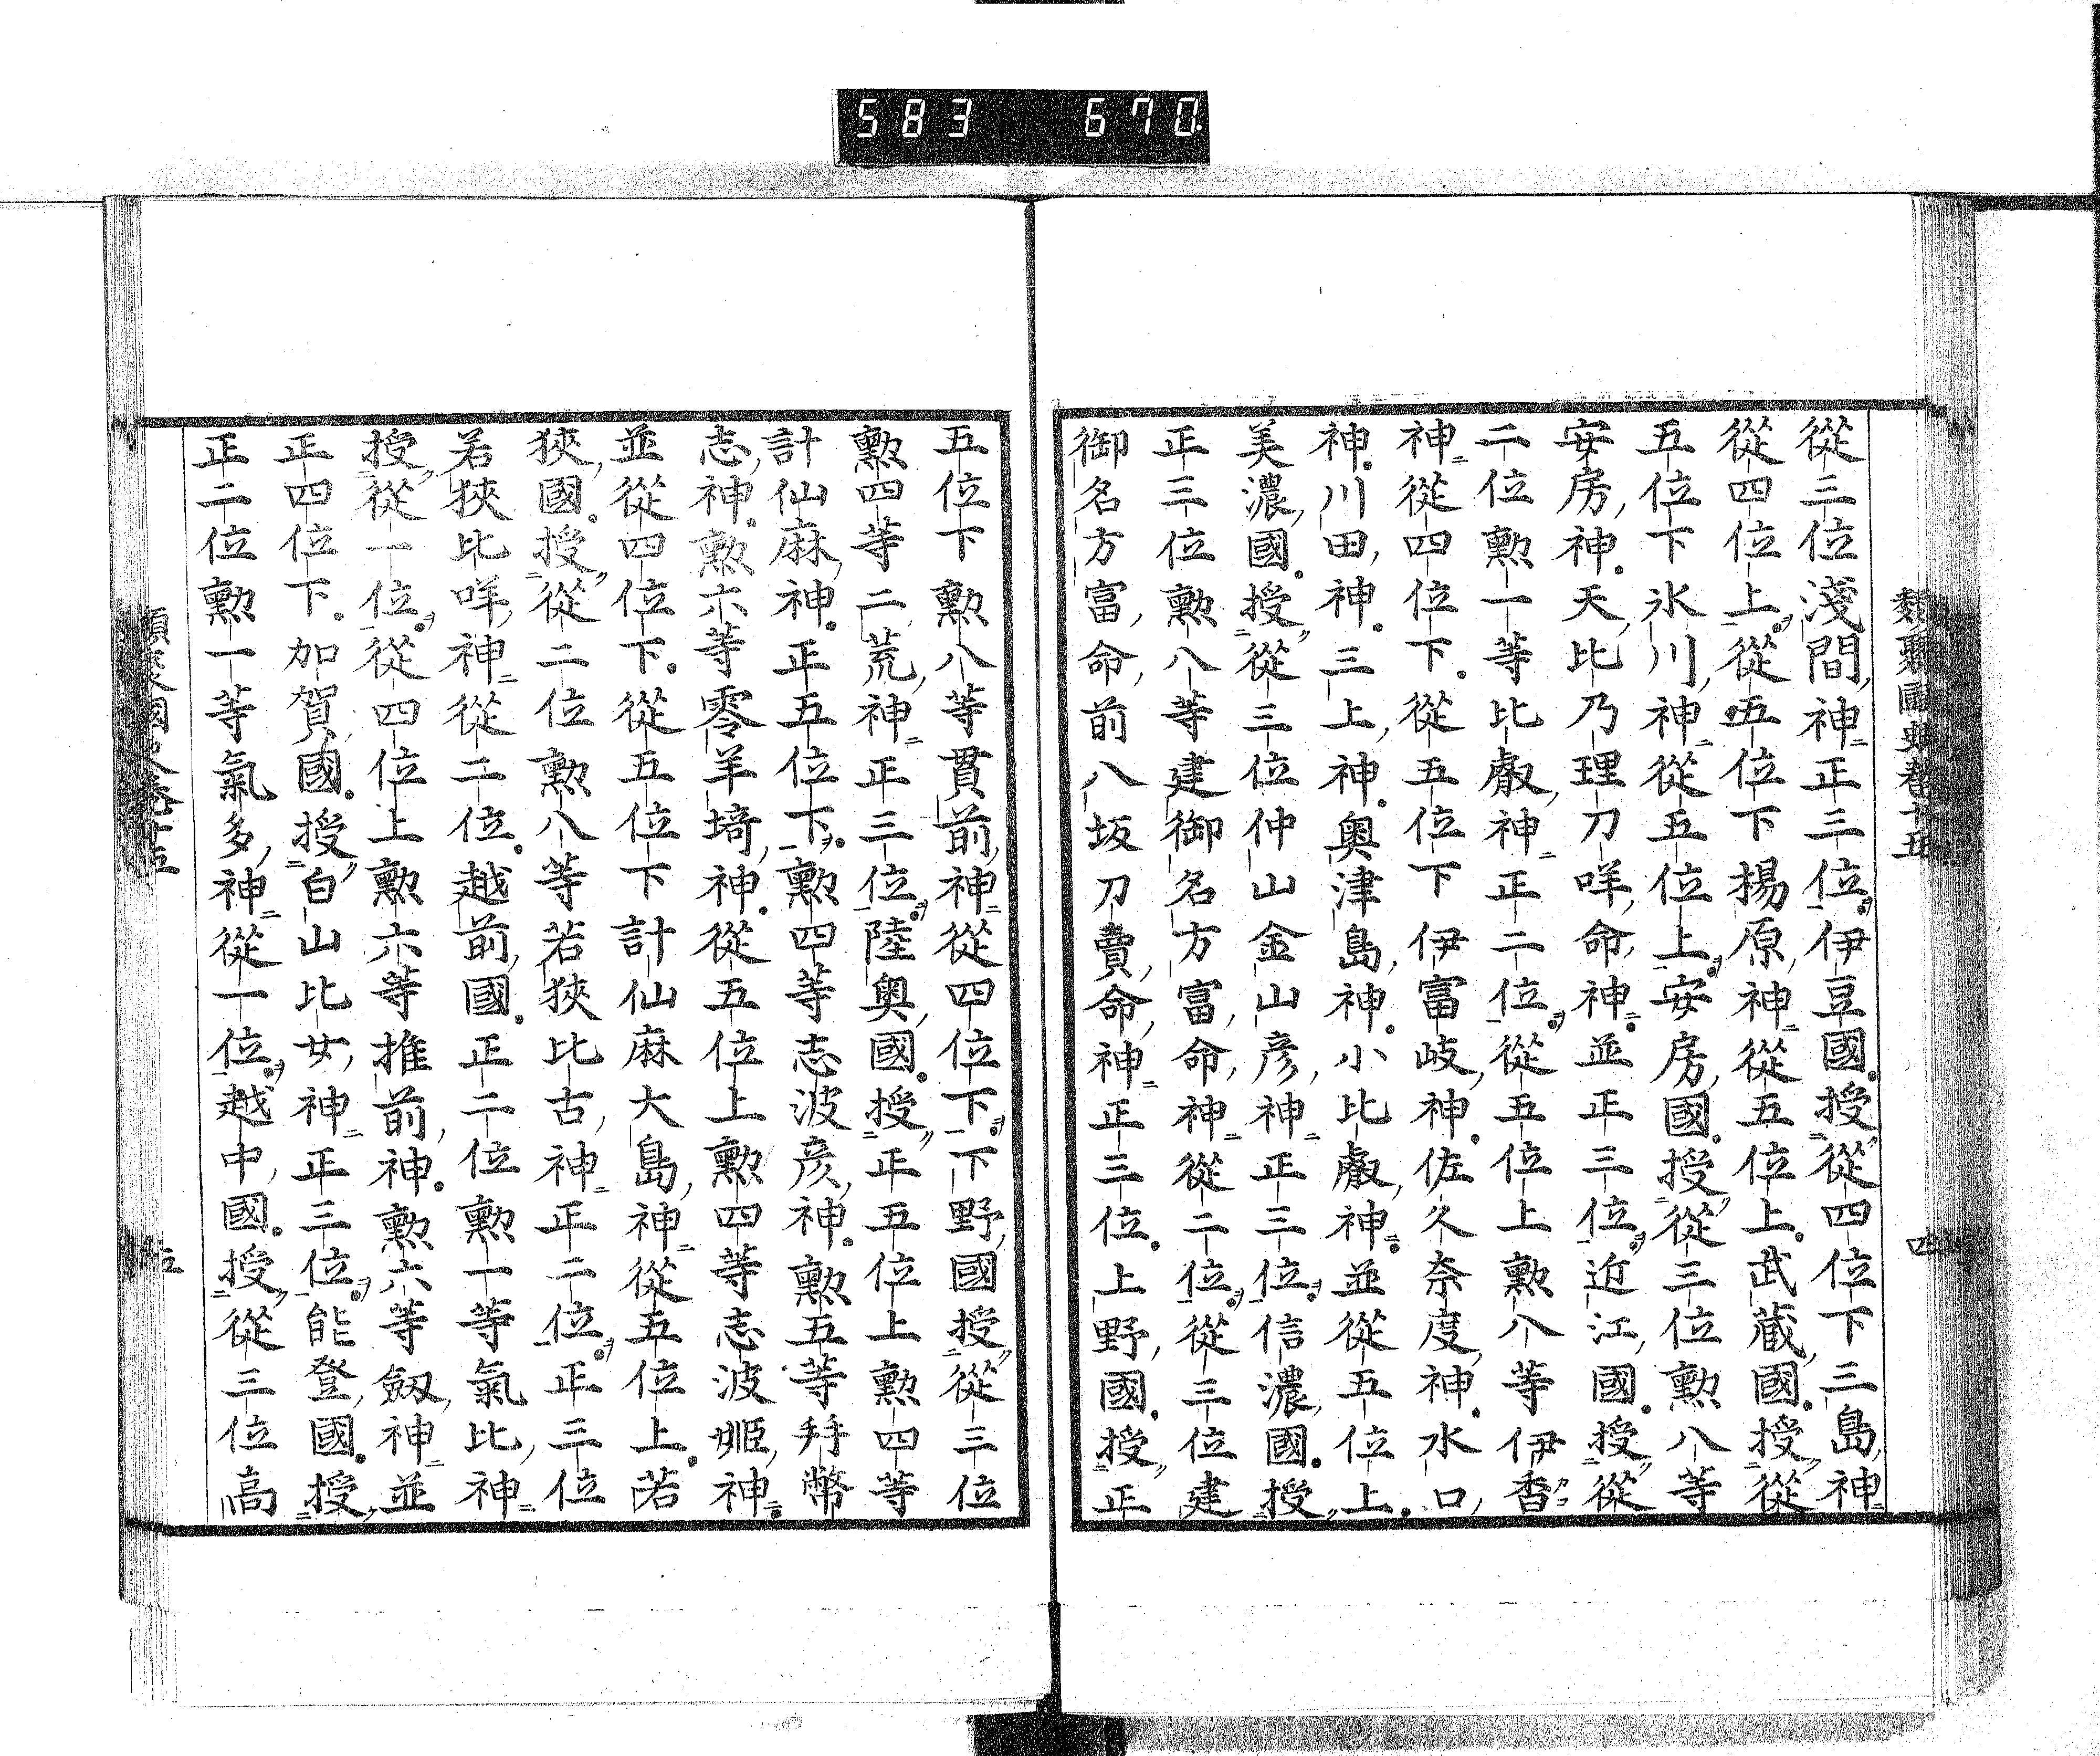 583 670
類聚國史卷十五
四
從三位淺間神正三位伊豆國授從四位下三島神
從四位上從五位下楊原神從五位上武藏國授從
五位下氷川神從五位上安房國授從三位勳八等
安房神天比乃理刀咩命神並正三位近江國授從
二位勳一等比叡神正二位從五位上勳八等伊香
神從四位下從五位下伊富岐神佐久奈度神水口
神川田神三上神奧津島神小比叡神並從五位上
美濃國授從三位仲山金山彦神正三位信濃國授
正三位勳八等建御名方富命神從二位從三位建
御名方富命前八坂刀賣命神正三位上野國授正
五位下勳八等貫前神從四位下下野國授從三位
勳四等二荒神正三位陸奧國授正五位上勳四等
計仙麻神正五位下勳四等志波彦神勳五等拜幣
志神勳六等零羊埼神從五位上勳四等志波姬神
並從四位下從五位下計仙麻大島神從五位上若
狹國授從二位勳八等若狹比古神正二位正三位
若狹比咩神從二位越前國正二位勳一等氣比神
授從一位從四位上勳六等推前神勳六等劔神並
正四位下加賀國授白山比女神正三位能登國授
正二位勳一等氣多神從一位越中國授從三位高
類聚國史卷十五
五